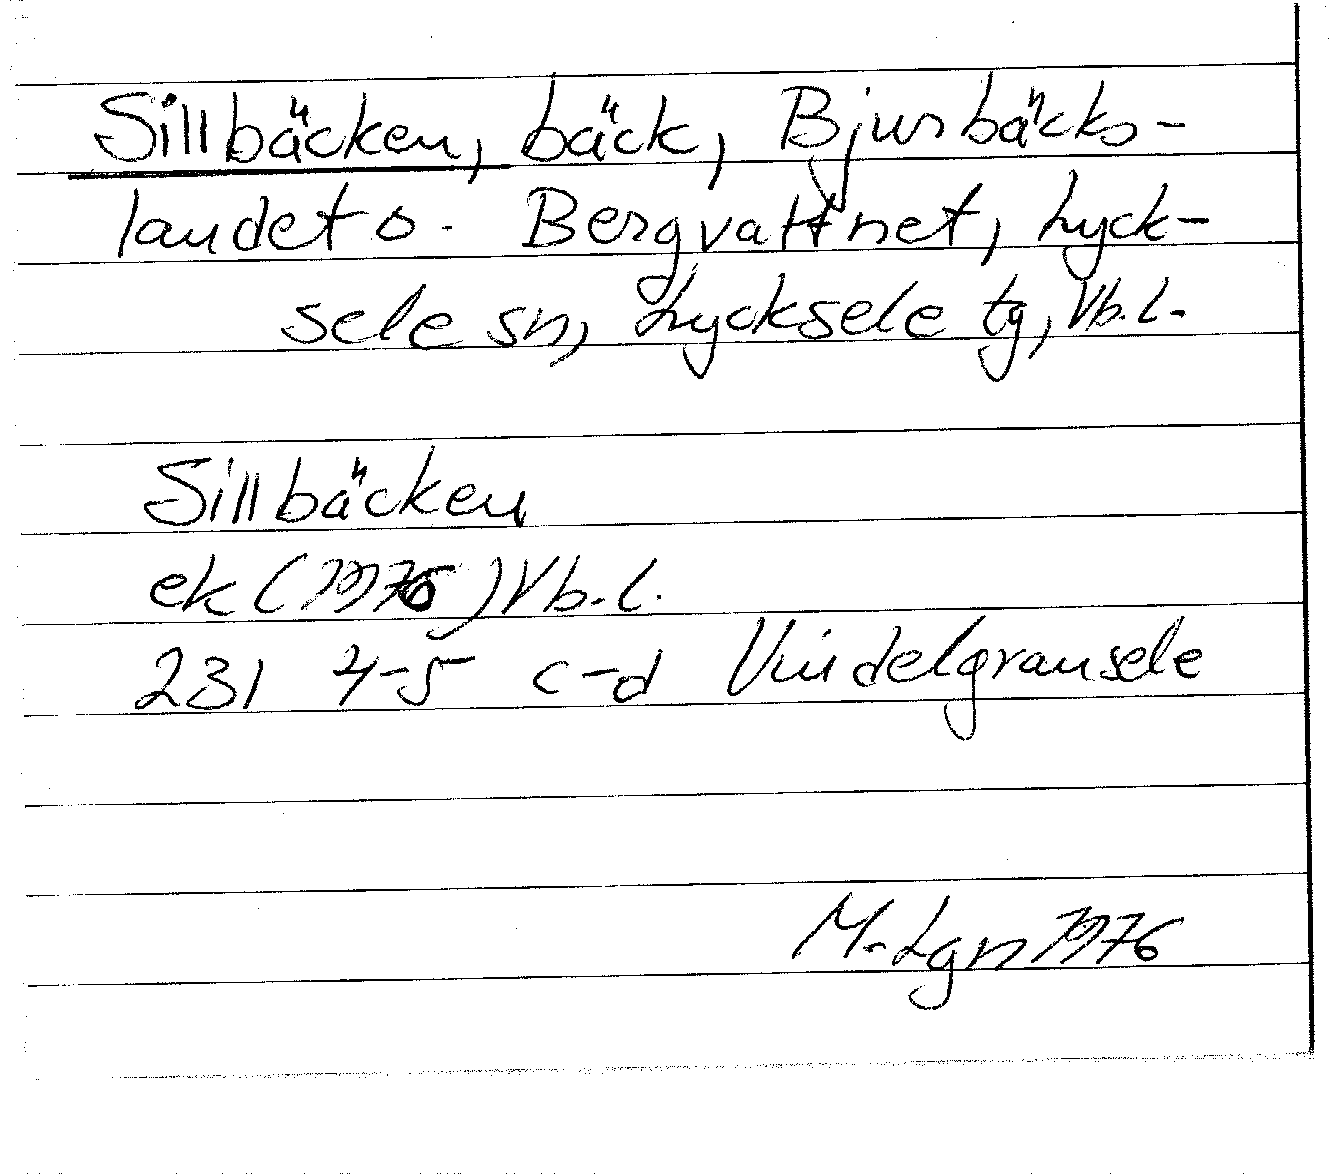 Sillbäcken, bäck, Bjursbäcks-
landet o. Bergvattnet, Lyck-
sele sn, Lycksele tg, Vb.l.
Sillbäcken
ek (1976) Vb.l.
231 4-5 c-d Vindelgransele
M.Lgn 1976